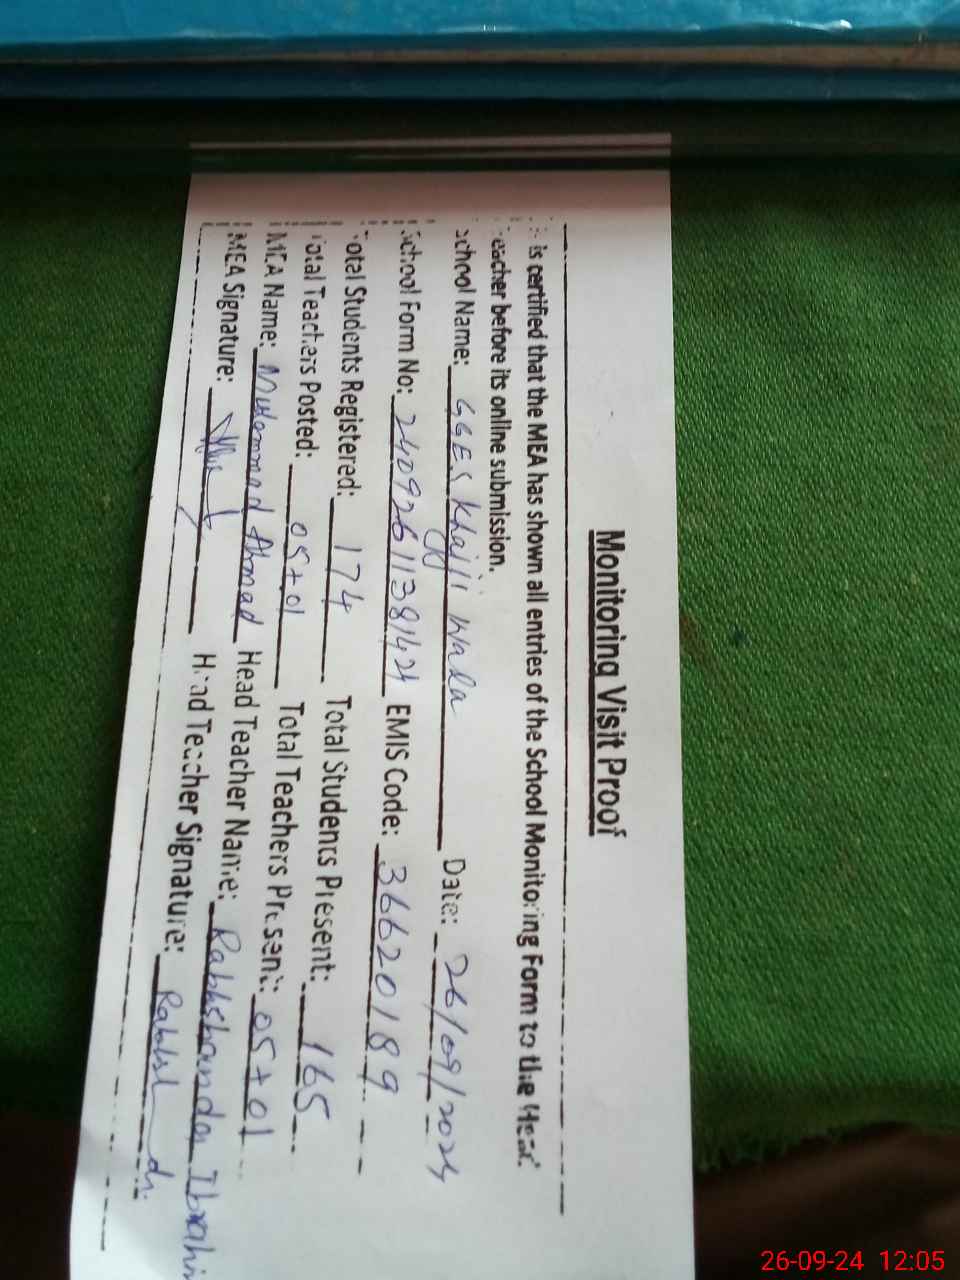 Monitoring Visit Proof
is certified that the MEA has shown all entries of the School Monitoring Form to the Head
Teacher before its online submission.
School Name: GGES Khajji Wala Date: 26/09/2024
School Form No: EMIS Code: 36620189
Total Students Registered: 174 Total Students Present: 165
Total Teachers Posted: 05+01 Total Teachers Present: 05+01
MEA Name: Muhammad Ahmad Head Teacher Name: Rakhshanda Ibrahi
MEA Signature: Head Teacher Signature:
26-09-24 12:05